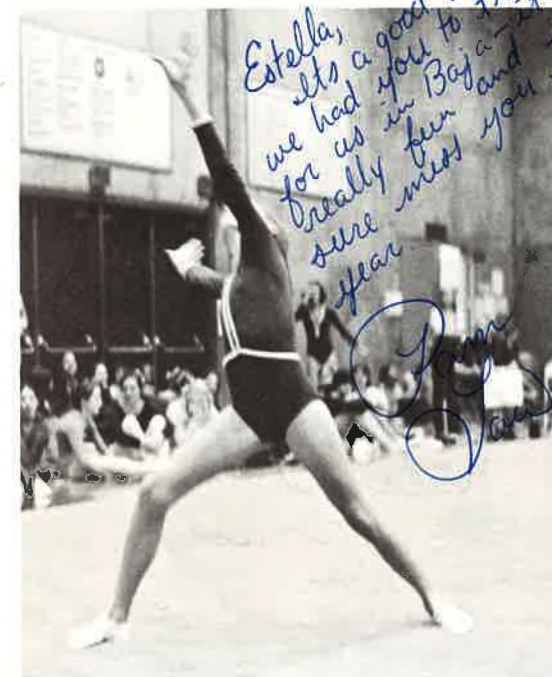 Estella,
Its a good
we had you to
for us in Baja-it
really fun and
sure miss you
year.
Pam